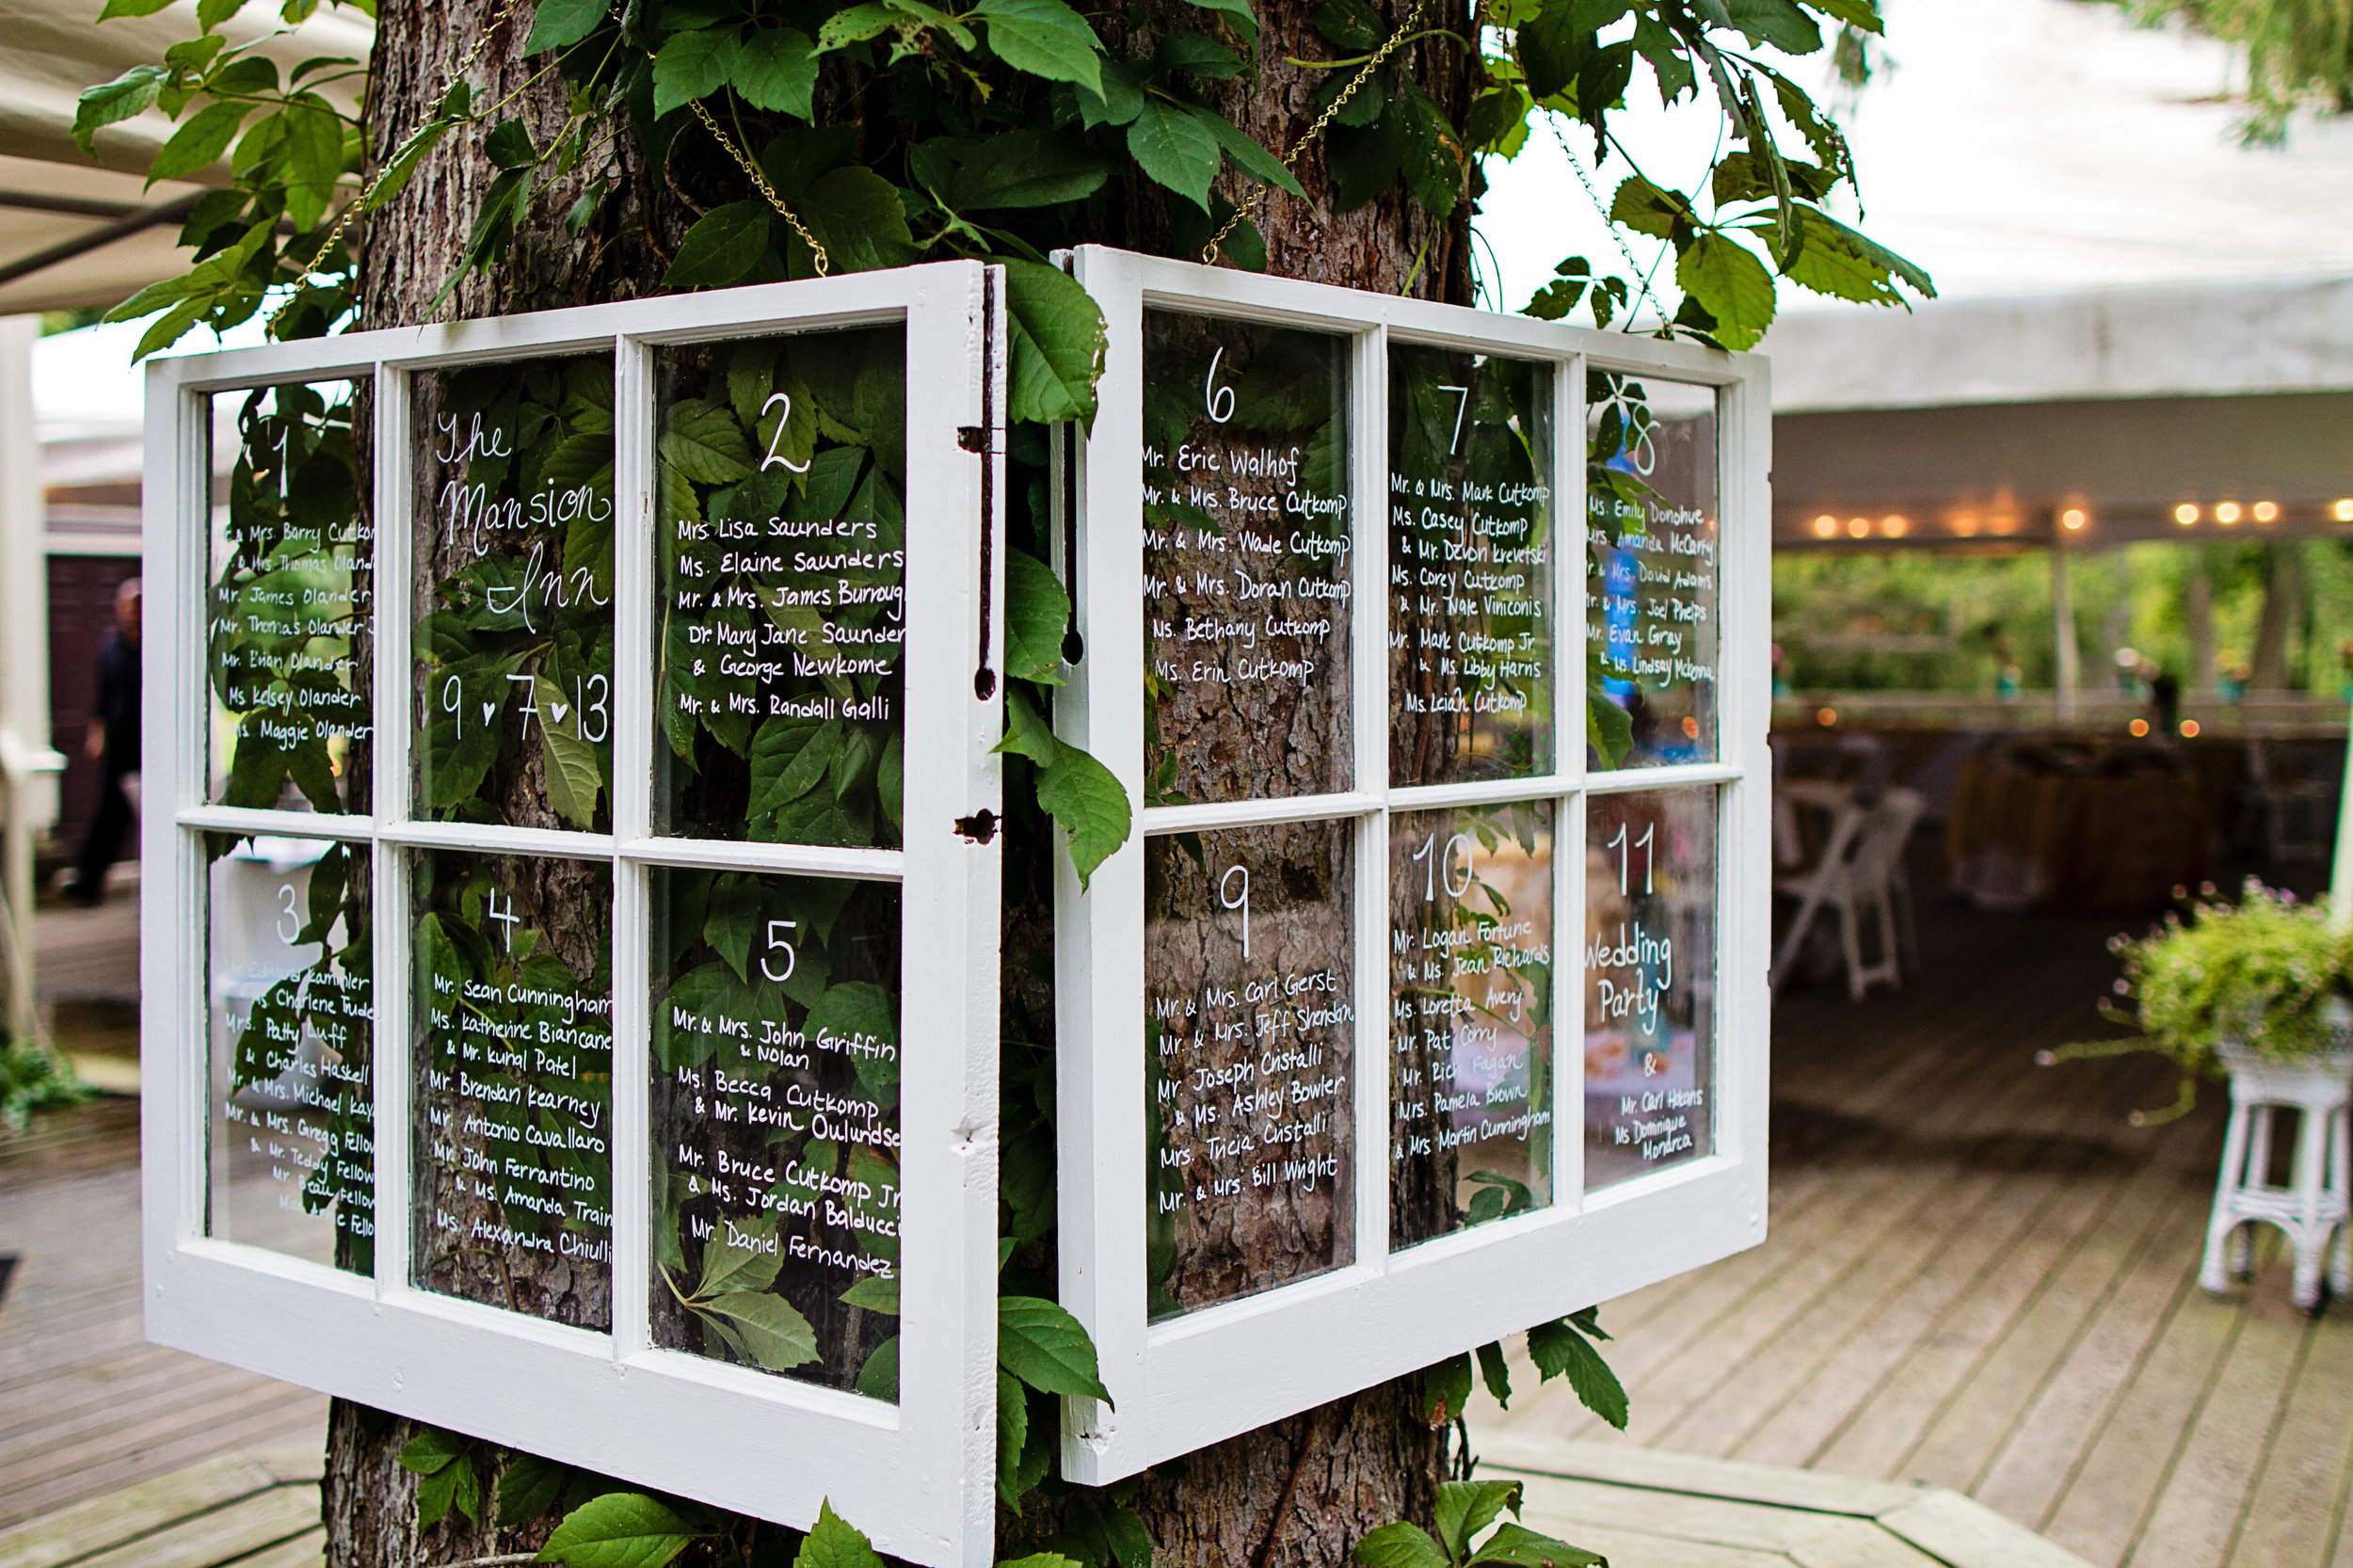 1
& Mrs. Barry
& Mrs. Thomas
Mr. James Olander
Mr. Thomas Olander
Mr. Olander
Ms Kelsey Olander
Ms. Maggie Olander
The
Mansion
Inn
9 ♥ 7 ♥ 13
2
Mrs. Lisa Saunders
Ms. Elaine Saunders
Mr. & Mrs. James
Dr. Mary Jane Saunder
& George Newkome
Mr. & Mrs. Randall Galli
3
Kammler
Ms. Charlene
Mrs. Patty Luff
& Charles Haskell
Mr. & Mrs. Michael
Mr. & Mrs. Gregg
& Mr. Teddy
Mr. Beau
4
Mr. Sean Cunningham
Ms. Katherine Biancane
& Mr. Kunal Patel
Mr. Brendan Kearney
Mr. Antonio Cavallaro
Mr. John Ferrantino
& Ms. Amanda Train
Ms. Alexandra Chiulli
5
Mr. & Mrs. John Griffin
& Nolan
Ms. Becca Cutkomp
& Mr. Kevin
Mr. Bruce Cutkomp Jr
& Ms. Jordan Balducci
Mr. Daniel Fernandez
6
Mr. Eric Walhof
Mr. & Mrs. Bruce Cutkomp
Mr. & Mrs. Wade Cutkomp
Mr. & Mrs. Doran Cutkomp
Ms. Bethany Cutkomp
Ms. Erin Cutkomp
7
Mr. & Mrs. Mark Cutkomp
Ms. Casey Cutkomp
& Mr. Devon Krevetski
Ms. Corey Cutkomp
& Mr. Viniconis
Mr. Mark Cutkomp Jr.
& Ms. Libby Harris
Ms. Leiah Cutkomp
8
Ms. Emily Donohue
Mrs. Amanda McCarty
Mr. & Mrs. David Adams
Mr. & Mrs. Joel Phelps
Mr. Evan Gray
& Ms. Lindsay
9
Mr. & Mrs. Carl Gerst
Mr. & Mrs. Jeff Shendan
Mr. Joseph Cristalli
& Ms. Ashley Bowler
Mrs. Tricia Cristalli
Mr. & Mrs. Bill Wright
10
Mr. Logan Fortune
& Ms. Jean Richards
Ms. Loretta Avery
Mr. Pat Corry
Mr. Rich Fagan
Mrs. Pamela Brown
& Mrs Martin Cunningham
11
Wedding
Party
&
Mr. Carl
Ms Dominique
Monarca